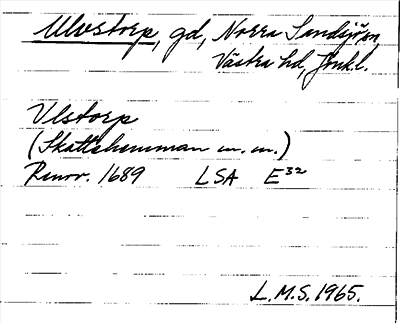 Ulvstorp, gd, Norra Sandsjö sn,
Västra hd, Jönk.l.
Ulstorp
(Skattehemman m.m.)
Renov. 1689 LSA E32
L.M.S. 1965.